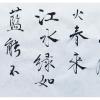 火春来
江水绿如
藍能不